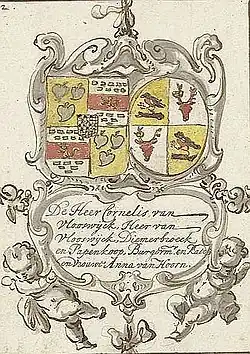 2.
De Heer Cornelis van
Vlooswyck, Heer van
Vlooswyck, Diemerbroeck
en Papenkoop, Burgerm.r en Raet
en Vrouwe Anna van Hoorn.